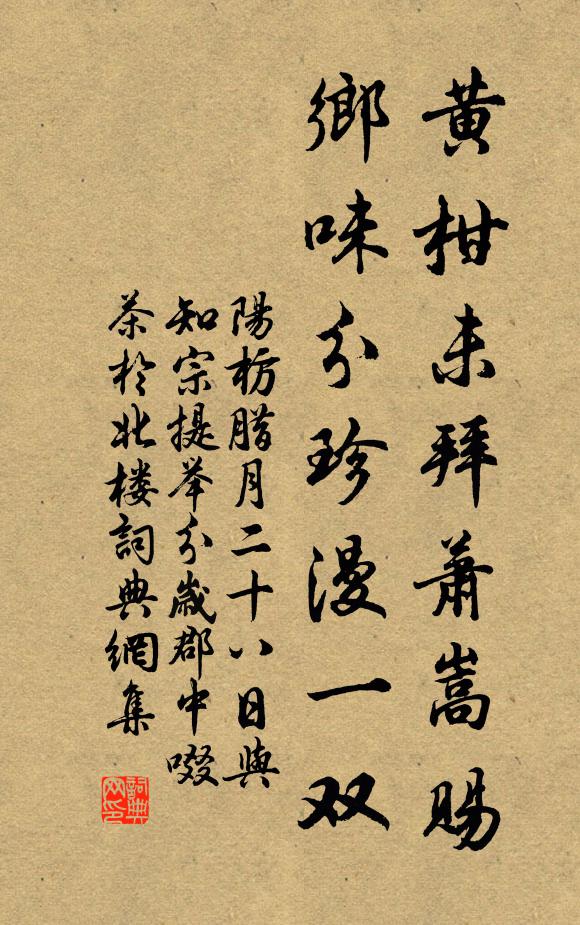 黄柑未拜蕭嵩賜
鄉味分珍漫一双
陽枋腊月二十八日與
知宗提举分歲郡中啜
茶於北楼詞典網集
詞典网印